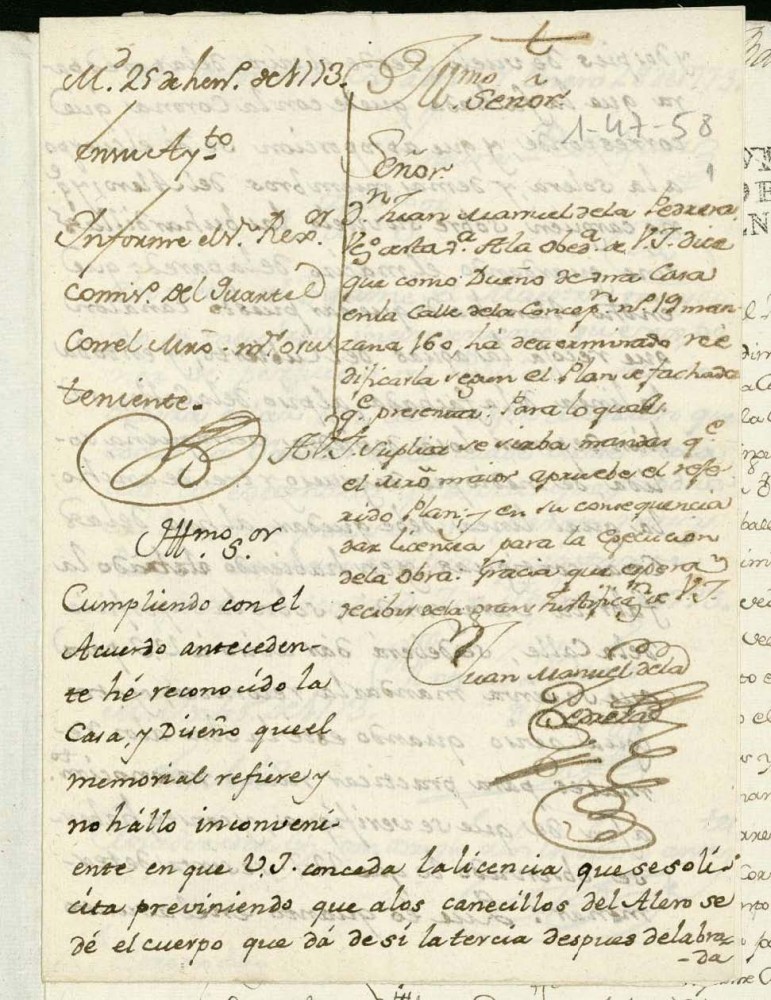 M.d 25 de hen.o de 1773.
En su Ay.to
Informe el S.r Rex.or
comis.o del Quartel
con el Mro. m.or o su
teniente.
Yllmo.
Señor
1-47-58
1
Señor
D.n Juan Manuel de la Pedrera
Vez.o de esta v.a A la obed.a de V.I. dice
que como Dueño de una Casa
en la Calle de la Concep.n n.o 19 man-
zana 160 há determinado reé
dificarla segun el Plan de fachada
q.e presenta. Para lo qual
A V.I. Suplica se sirba mandar q.e
el Mrô maior apruebe el refe-
rido Plan, y en su consequencia
dar licencia para la Ejecucion
de la Obra. Gracia que espera
recibir de la gran justificaz.n de V.I.
Juan Manuel de la
Pedrera
Illmo. S.or
Cumpliendo con el
Acuerdo anteceden-
te hé reconocido la
Casa, y Diseño que el
memorial refiere y
no hállo inconveni-
ente en que V.I. conceda la licencia que se soli-
cita previniendo que a los canecillos del Alero se
dé el cuerpo que dá de sí la tercia despues de labra-
-da